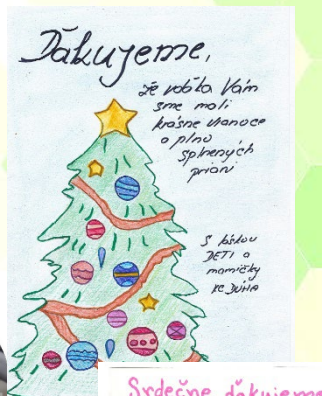 Ďakujeme,
že vďaka Vám
sme mali
krásne Vianoce
a plno
splnených
prianí
S láskou
DETI a
mamičky
KC DÚHA
Srdečne ďakujeme